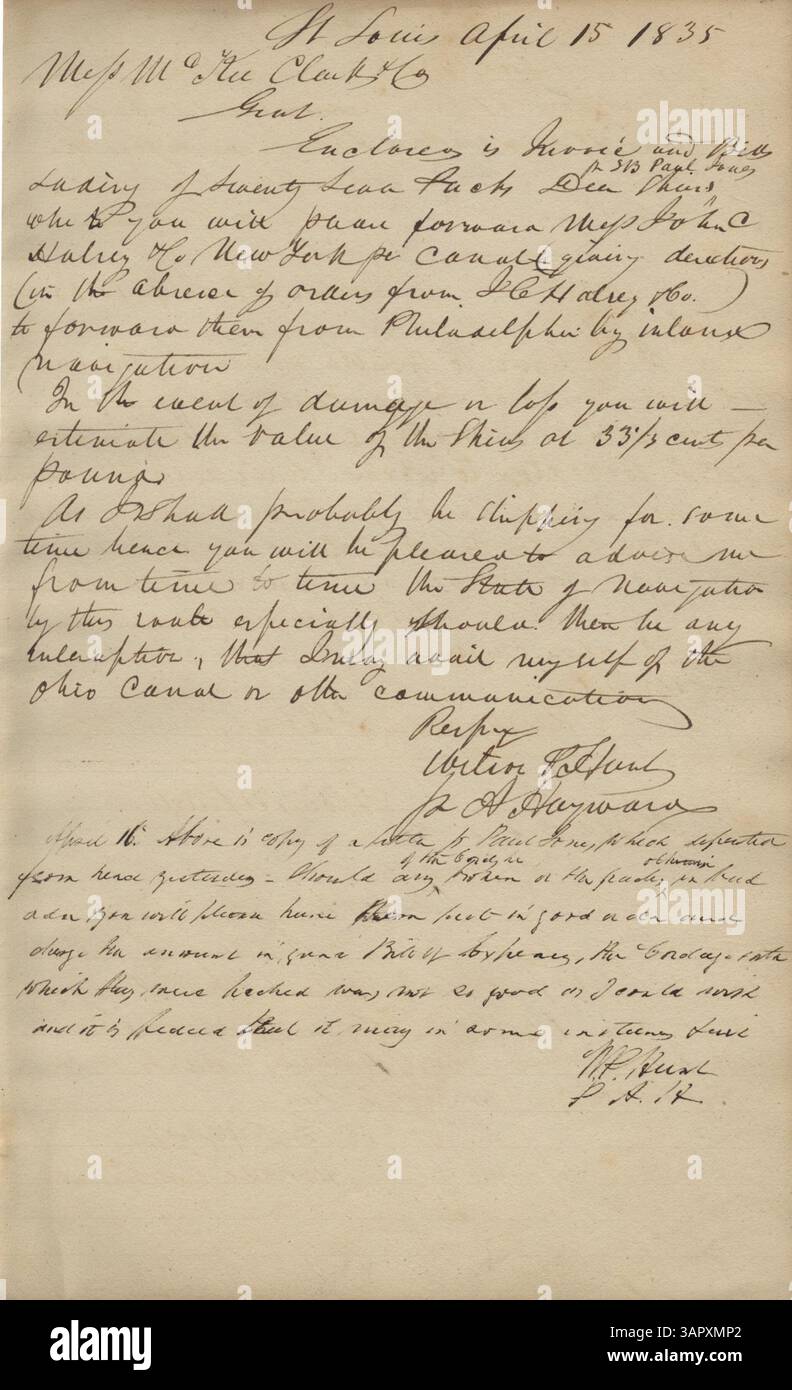 St Louis April 15 1835
Mess McKee Clark & Co
Gent.
Enclosed is Invoice and Bill
pr SB Paul Jones
Lading of Seventy Seven Packs Deer Skins
which you will please forward Mess John C
Halsey & Co New York pr Canal giving directions
(in the absence of orders from J C Halsey & Co.)
to forward them from Philadelphia by inland
navigation
In the event of damage or loss you will
estimate the value of the Skins at 33 1/3 cents per
pound
As I Shall probably be shipping for some
time hence you will be pleased to advise me
from time to time the State of navigation
by this route especially should there be any
interruption, that I may avail myself of the
Ohio Canal or other communication
Respy
Wilson P Hunt
pr A Hayward
April 16. Above is copy of a letter pr Paul Jones which departed
of the Cordage
from here yesterday - Should any broken or the packs in bad
order you will please have them put in good order and
charge the amount in your Bill of Expenses, the Cordage with
which they were packed was not so good as I could wish
and it is feared that it may in some instances
W.P. Hunt
P A. H.
alamy
alamy
a
Image ID: 3APXMP2
www.alamy.com